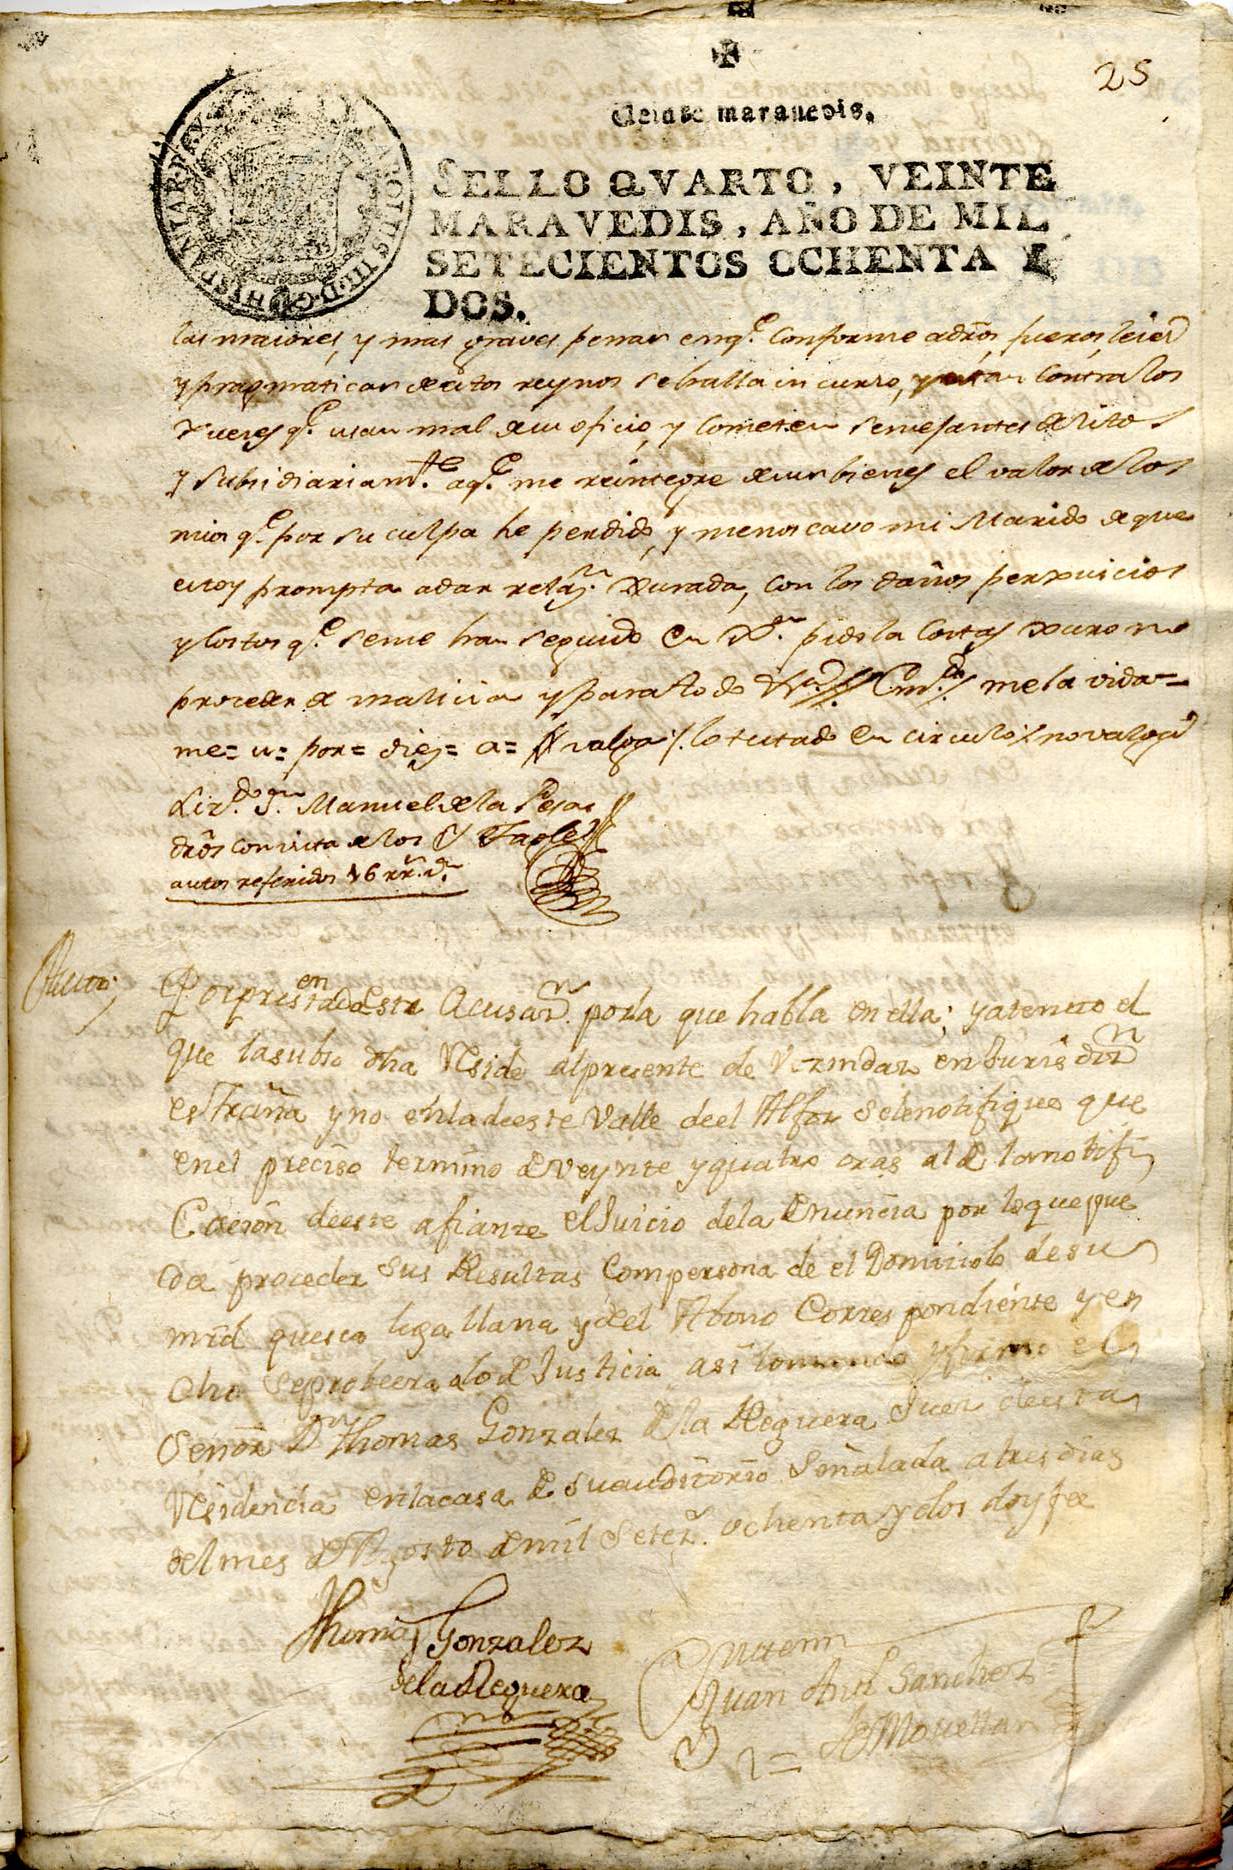 25
Veinte maravedis.
SELLO QVARTO, VEINTE
MARAVEDIS, AÑO DE MIL
SETECIENTOS OCHENTA Y
DOS.
CAROLUS III D G HISPANIAR REX
las maiores, y mas graves penas enq.e conforme adros, fueros, leies
y pragmaticas destos reynos sehalla in curso, y estan contra los
Jueces q.e usan mal desu oficio, y cometen semejantes delitos
y subsidiariam.te aq.e me reintegre desus bienes el valor delos
mios q.e por su culpa he perdido, y menoscavo mi Marido deque
estoy prompta adar relaz.n Jurada, con los daños perxuicios
y costos q.e seme han seguido en Raz.n pido la costas Juro no
proceder de malicia y para todo
me la vida=
me= u= por= dies= a= valga lo testado en circulo no valga
Liz.do D.n Manuel dela Pesa
dros con vista delos
autos referidos 16 rr.s v.n
Auto
Por presentada esta Acusaz.n por la que habla en ella; y atento el
que la suso dha Reside al presente de Vezindaz en Jurisdiz.n
estraña y no en la deeste Valle deel Alfoz selenotifique que
enel preciso termino de veynte y quatro oras al de la notifi
cacion deeste afianze el Juicio dela Denuncia por lo que pue
da proceder sus Resultas con persona de el Domizilo de su
mrd que sea lega llana y del Abono Correspondiente y en
otro seprobeera alo de Justicia asi lo mando y firmo el
Señor D.n Thomas Gonzalez de la Reguera Juez deesta
Residencia en la casa de su auditorio Señalada a tres dias
del mes de Agosto de mil setez.s ochenta y dos doy fee
Thomas Gonzalez
de la Reguera
Ante mi
Juan Ant.o Sanchez
de Movellan